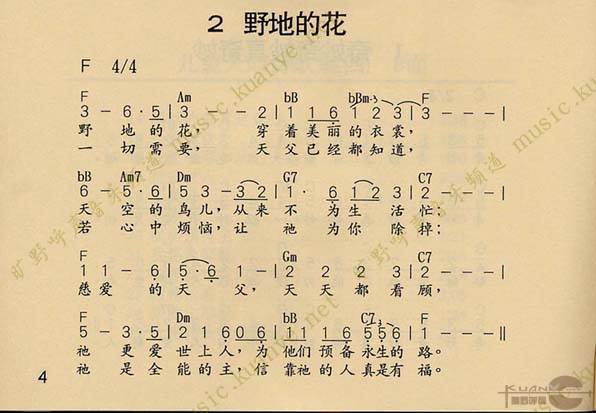 2 野地的花
F 4/4
F Am bB bBm-3 F
3 - 6 · 5 | 3 - - 2 | 1 1 6 1 2 3 | 3 - - - |
野 地 的 花, 穿 着 美 丽 的 衣 裳,
一 切 需 要, 天 父 已 经 都 知 道,
bB Am7 Dm G7 C7
6 - 5 · 6 | 5 3 - 3 2 | 1 1 · 6 1 2 3 | 2 - - - |
天 空 的 鸟 儿, 从 来 不 为 生 活 忙;
若 心 中 烦 恼, 让 祂 为 你 除 掉;
F Gm C7
1 1 - 6 | 5 · 6 5 - | 2 2 2 3 | 2 - - - |
慈 爱 的 天 父, 天 天 都 看 顾,
F Dm bB C7 3 F
5 - 3 · 5 | 2 1 6 0 6 | 1 1 1 6 5 5 6 | 1 - - - ||
祂 更 爱 世 上 人, 为 他们 预 备 永生 的 路。
祂 是 全 能 的 主, 信 靠祂 的 人 真是 有 福。
4
旷野呼声音乐频道 music.kuanye.net
KUANYE
旷野呼声